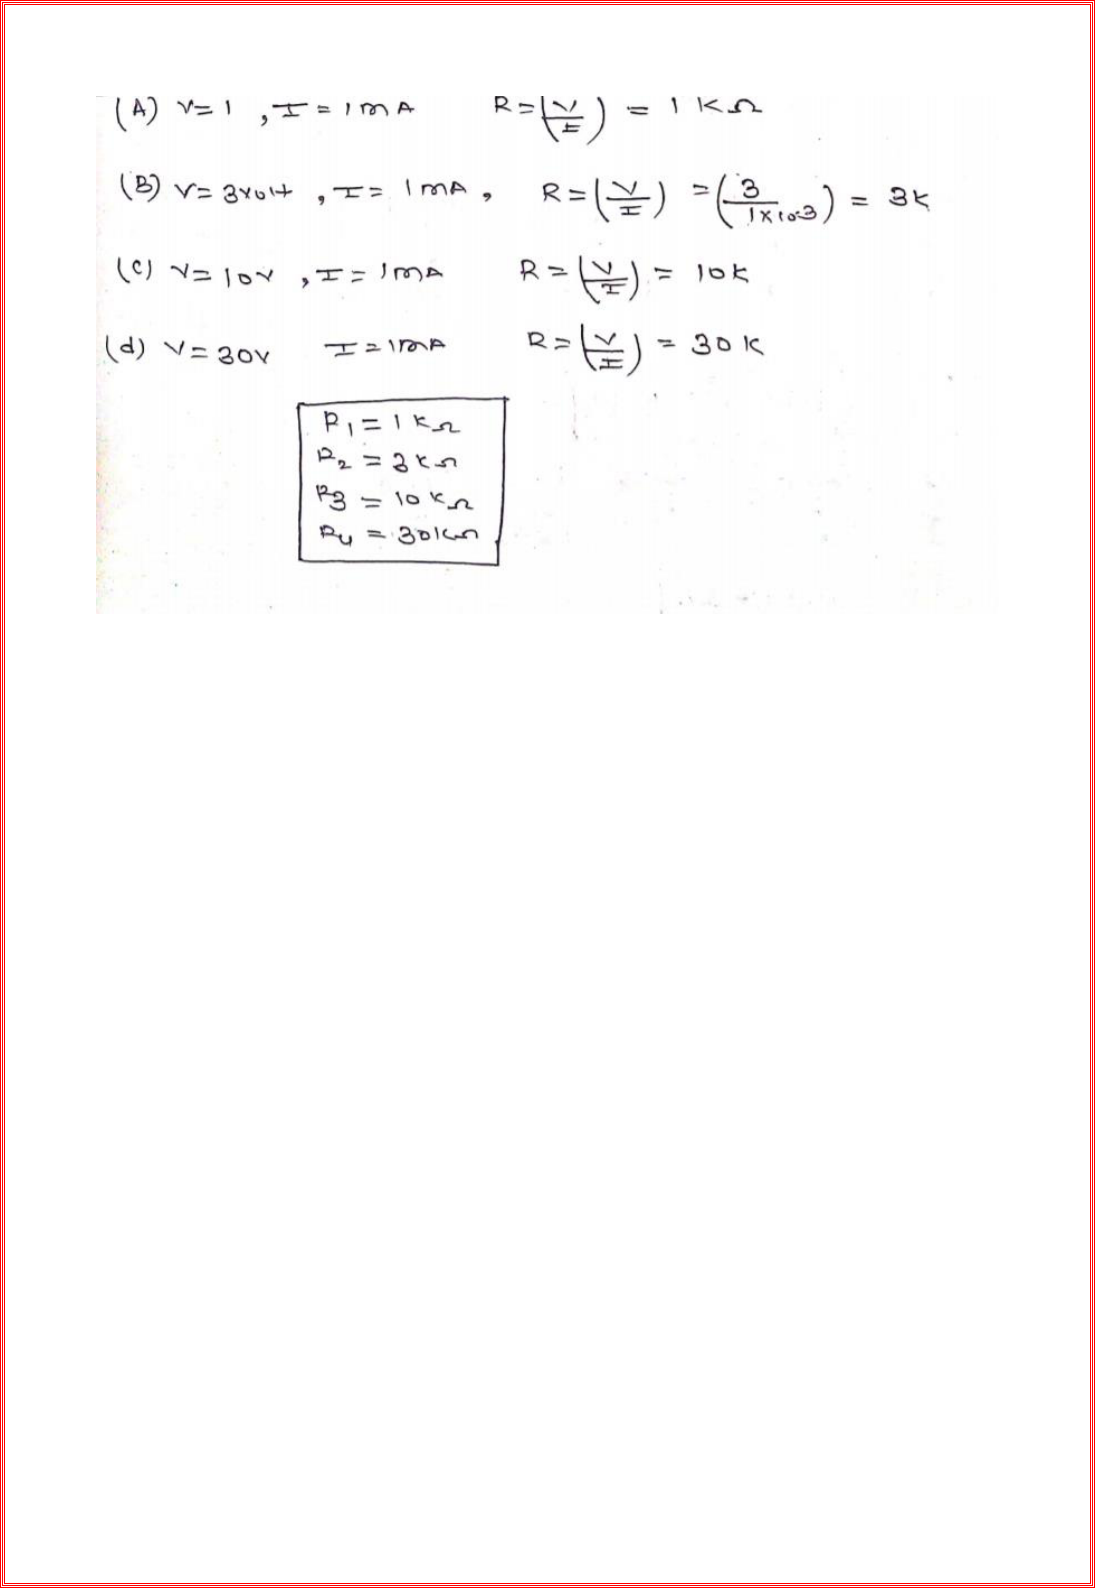 (A) V=1 , I = 1mA R=(V/I) = 1 KΩ
(B) V= 3volt , I= 1mA, R=(V/I) =(3/1×10-3) = 3K
(C) V=10V , I=1mA R=(V/I) = 10K
(d) V=30V I=1mA R=(V/I) = 30K
R1=1KΩ
R2 = 3KΩ
R3 = 10KΩ
R4 = 30KΩ